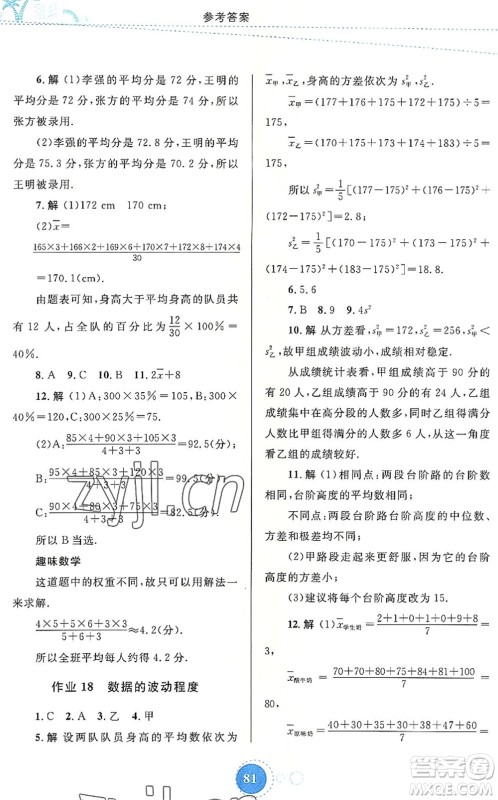 参考答案
6.解 (1)李强的平均分是 72 分，王明的
平均分是 72 分，张方的平均分是 74 分，所以
张方被录用.
(2)李强的平均分是 72.8 分，王明的平均
分是 75.3 分，张方的平均分是 70.2 分，所以
王明被录用.
7.解 (1)172 cm 170 cm；
(2)x̄=
(165×3+166×2+169×6+170×7+172×8+174×4)/30
=170.1(cm).
由题表可知，身高大于平均身高的队员共
有 12 人，占全队的百分比为 12/30×100%=
40%.
8.A 9.C 10.B 11.2x̄+8
12.解 (1)A：300×35%=105.
B：300×40%=120.
C：300×25%=75.
(2)A：(85×4+90×3+105×3)/(4+3+3)=92.5(分)；
B：(95×4+80×3+120×3)/(4+3+3)=98(分)；
C：(90×4+80×3+75×3)/(4+3+3)=82.5(分).
所以 B 当选.
趣味数学
这道题中的权重不同，故应用加权平均数
来求解.
(4×5+5×6+3×3)/(5+6+3)≈4.2(分).
所以全班平均每人得 4.2 分.
作业 18 数据的波动程度
1.C 2.A 3.乙 4.甲
5.解 设两队队员身高的平均数依次为
x̄甲，x̄乙，身高的方差依次为 s²甲，s²乙.
x̄甲=(177+176+175+172+175)÷5=
175，
x̄乙=(170+175+173+174+183)÷5=
175，
所以 s²甲=1/5[(177-175)²+(176-175)²
+(175-175)²+(172-175)²+
(175-175)²]=2.8；
s²乙=1/5[(170-175)²+(175-175)²+
(173-175)²+(174-175)²+
(183-175)²]=18.8.
6.5.6
7.B 8.9 9.4s²
10.解 从方差看，s²甲=172，s²乙=256，s²甲<
s²乙，故甲组成绩波动小，成绩相对稳定.
从成绩统计表看，甲组成绩高于 90 分的
有 20 人，乙组成绩高于 90 分的有 24 人，乙
组成绩集中在高分段的人数多，同时，乙组成
绩得满分的人数比甲组多 6 人，从这一角度
看乙组的成绩较好.
11.解 (1)相同点：两段台阶路的台阶
数相同，台阶高度的平均数相同；
不同点：两段台阶路台阶高度的中位数、
方差和极差均不相同.
(2)甲路段走起来更舒服，因为它的台阶
高度的方差小；
(3)建议将每个台阶高度改为 15.
12.解 (1)x̄学生奶=(2+1+0+1+0+9+8)/7=
3，
x̄酸牛奶=(70+70+80+75+84+81+100)/7=
80，
x̄原味奶=(40+30+35+30+38+47+60)/7=
81
zyjl.cn
答案圈
MXQE.COM